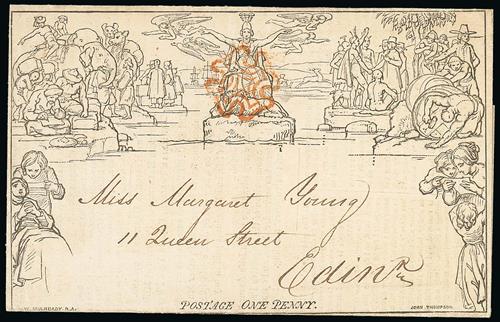 Miss Margaret Young
11 Queen Street
Edinr
POSTAGE ONE PENNY.
W. MULREADY. R.A.
JOHN THOMPSON